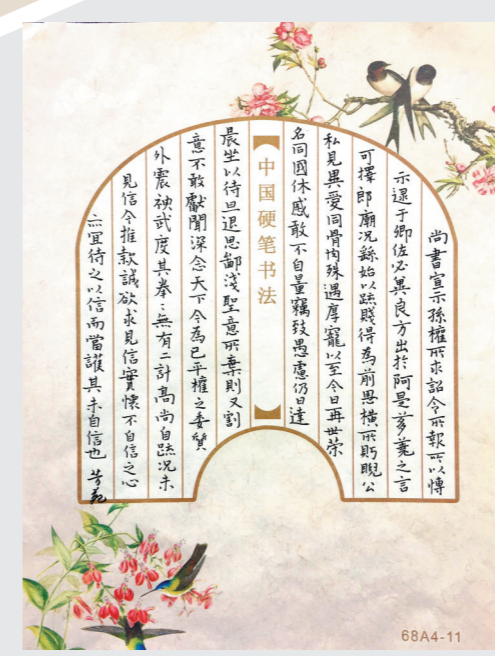 尚書宣示孫權所求詔令所報所以博
示逮于卿佐必異良方出於阿是芻蕘之言
可擇郎廟況繇始以疏賤得為前恩橫所眄睨公
私見異愛同骨肉殊遇厚寵以至今日再世榮
名同國休慼敢不自量竊致愚慮仍日達
中国硬笔书法
晨坐以待旦退思鄙淺聖意所棄則又割
意不敢獻聞深念天下今為已平權之委質
外震神武度其拳〻無有二計高尚自疏況未
見信今推款誠欲求見信實懷不自信之心
亦宜待之以信而當護其未自信也
68A4-11